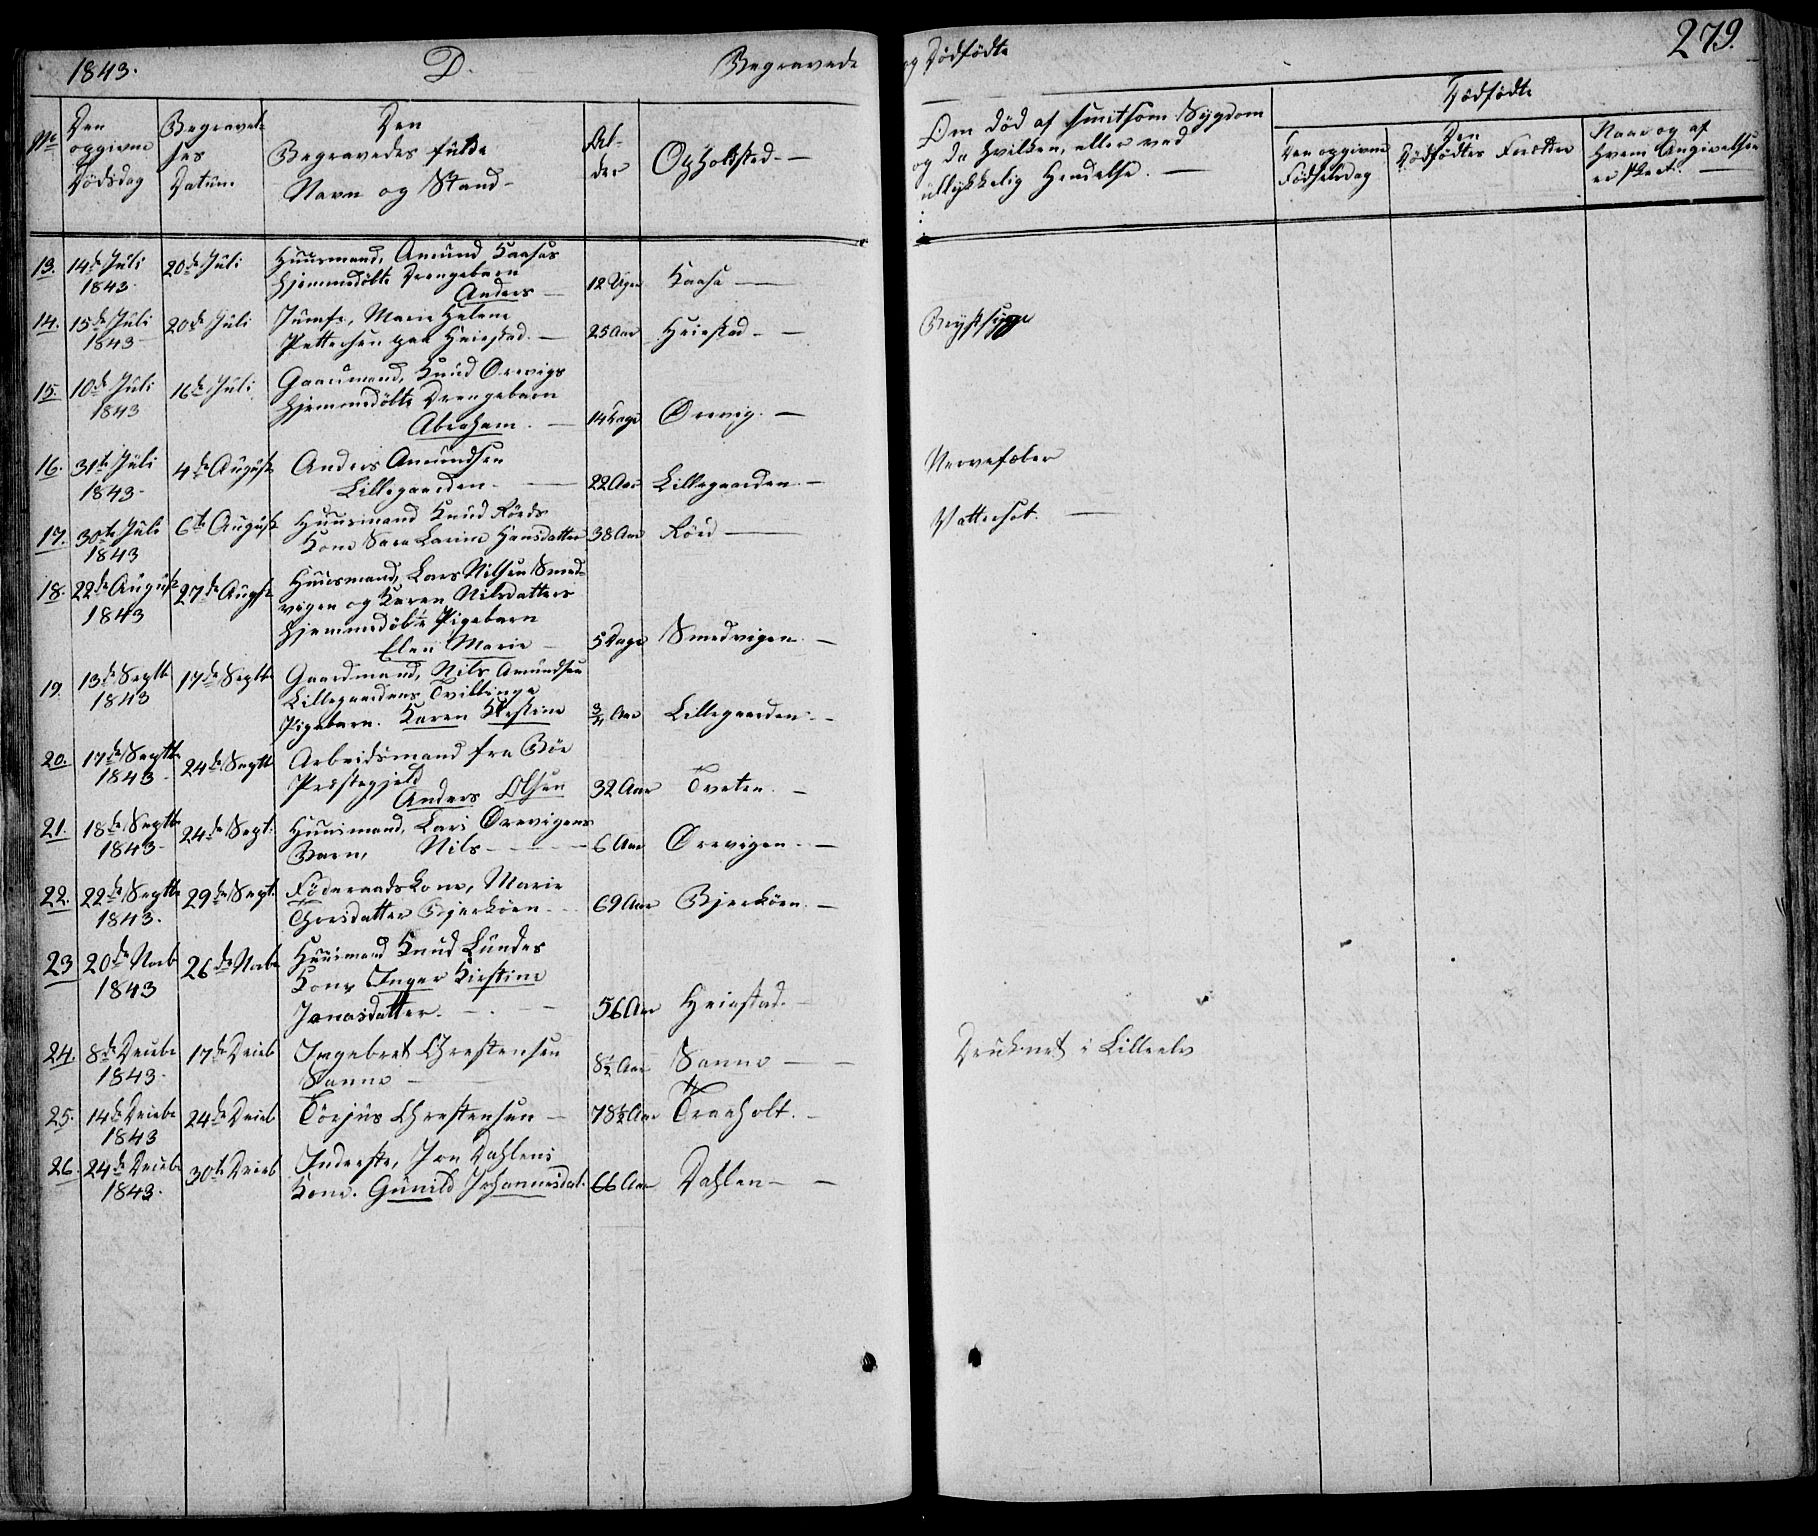 1843. D. Begravede og Dødfødte 279.
No Den opgivne Dødsdag
Begravelses Datum
Den Begravedes fulde Navn og Stand
Alder
Opholdssted.
Om død af smitsom Sygdom og da hvilken, eller ved ulykkelig Hendelse.
Dødfødte
Den opgivne Fødselsdag
Den Dødfødtes Forældre
Naar og af Hvem Angivelsen er skeet.
13. 14de Juli 1843. 20de Juli Huusmand, Amund Kaasas
hjemmedøbte Drengebarn
Anders 12 Uger Kaasa
14. 15de Juli 1843 20de Juli Jomfr, Marie Helene
Pettersen paa Heiestad. 25 Aar Heiestad Brystsyge
15. 10de Juli 1843 16de Juli Gaardmand, Knud Orevigs
hjemmedøbte Drengebarn
Abraham. 14 Dage Orevig.
16. 31te Juli 1843 4de August Anders Amundsen
Lillegaarden. 22 Aar Lillegaarden. Nervefeber
17. 30te Juli 1843 6te August Huusmand Knud Röeds
Kone Sara Larine Hansdatter 38 Aar Röed Vattersot.
18. 22de August 1843 27de Augst Huusmand, Lars Nilsen Smed-
vigen og Karen Nilsdatters
hjemmedøbte Pigebarn
Elen Marie 5 Dage Smedvigen.
19. 13de Septb 1843 17de Septb Gaardmand, Nils Amundsen
Lillegaardens Tvillinge
Pigebarn. Karen Kirstine 3/4 Aar Lillegaarden.
20. 17de Septb 1843 24de Septb Arbeidsmand fra Böe
Præstegjeld
Anders Olsen 32 Aar Tveten.
21. 18de Septb 1843 24de Sept. Huusmand, Lars Orevigens
Barn, Nils 6 Aar Orevigen.
22. 22de Septb 1843. 29de Sept. Föderaadskone, Marie
Thorsdatter Bjerköen 69 Aar Bjerköen.
23 20de Novb 1843 26de Novb Huusmand Knud Lundes
Kone Inger Kirstine
Jonasdatter. 56 Aar Heiestad.
24. 8de Decbr 1843 17de Decb Ingebret Chrestensen
Sanne 8 1/2 Aar Sanne Druknet i Lilleelv
25. 14de Decbr 1843 24de Decb Törjus Chrestensen 78 1/2 Aar Traaholt.
26. 24de Decbr 1843. 30te Decb Inderste, Jon Dahlens
Kone. Gunild Johannesdat. 66 Aar Dahlen